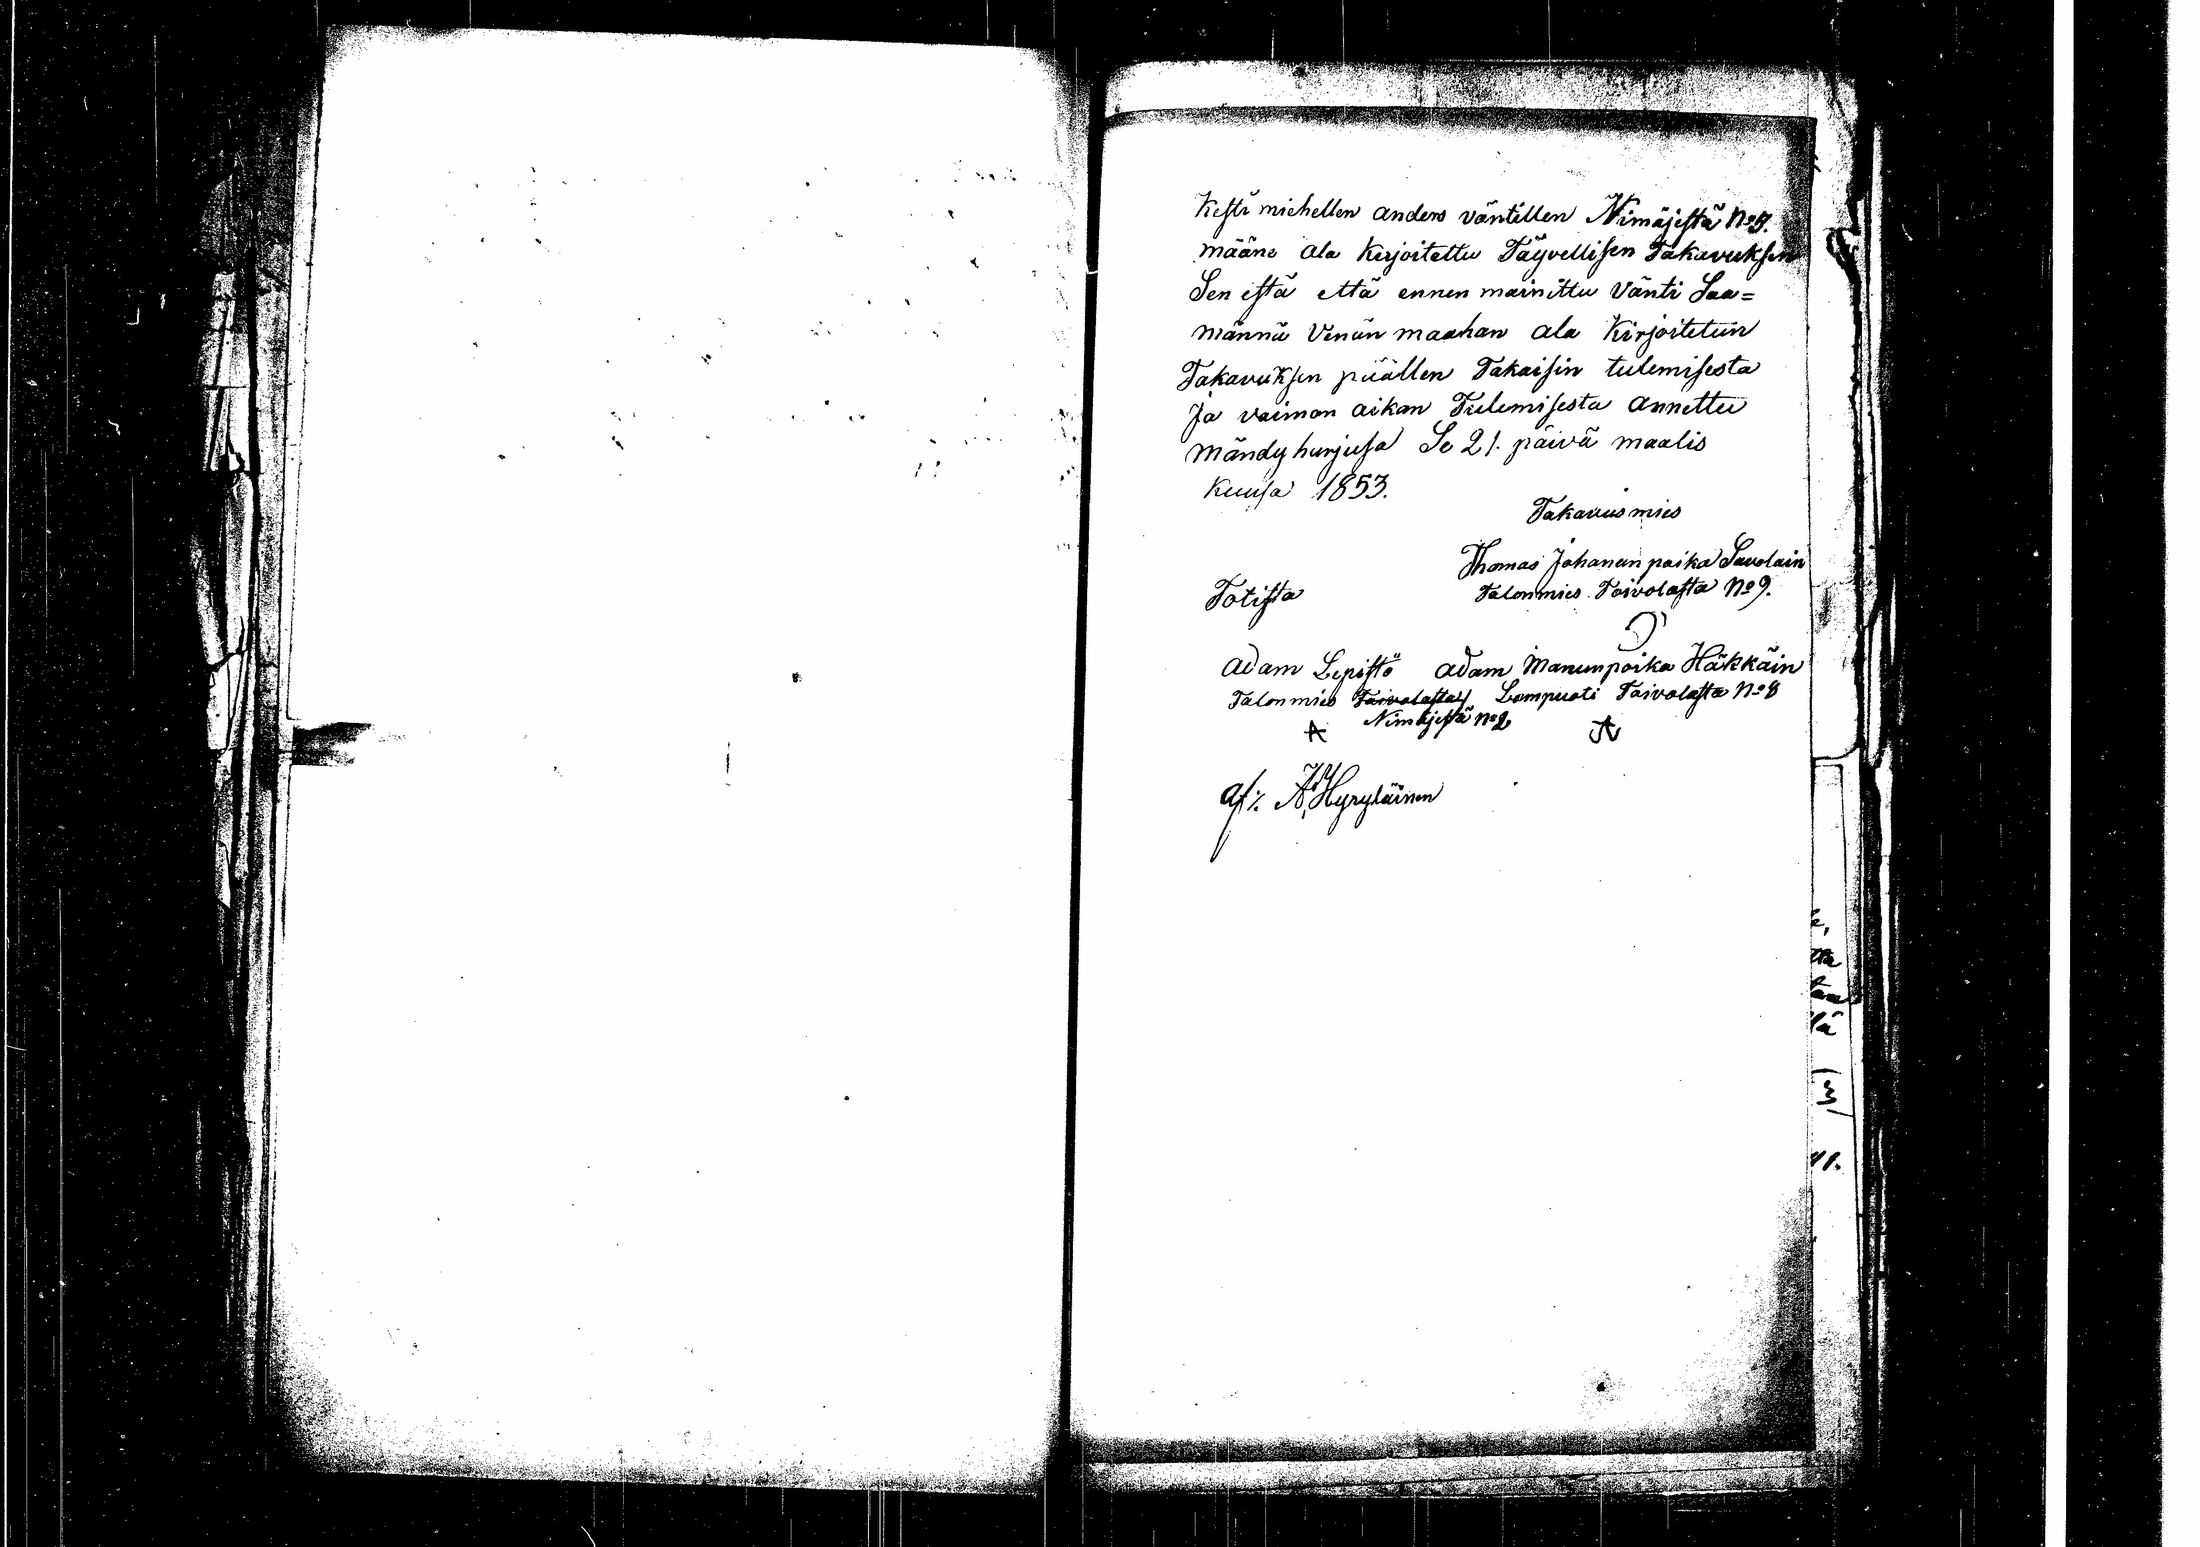 Kesti miehellen anders väntillen Nimäjestä No 9.
määne ala Kirjoitettu Täyvellisen Takavuksen
Sen estä että ennen mainittu Vänti Saa=
männä Venän maahan ala Kirjoitetuin
Takavuksen päällen Takaisin tulemisesta
Ja vaimon aikan Tulemisesta annettu
Mändyharjusa Se 21. päivä maalis
Kuusa 1853.
Takavusmies
Thomas Johanunpoika Savolain
Talonmies Toivolasta No 9.
Totista
Adam Lepistö Adam Manunpoika Häkkäin
Talonmies Toivolasta Lampuoti Toivolasta No 8
Nimäjestä No 2
af: Hyryläinen